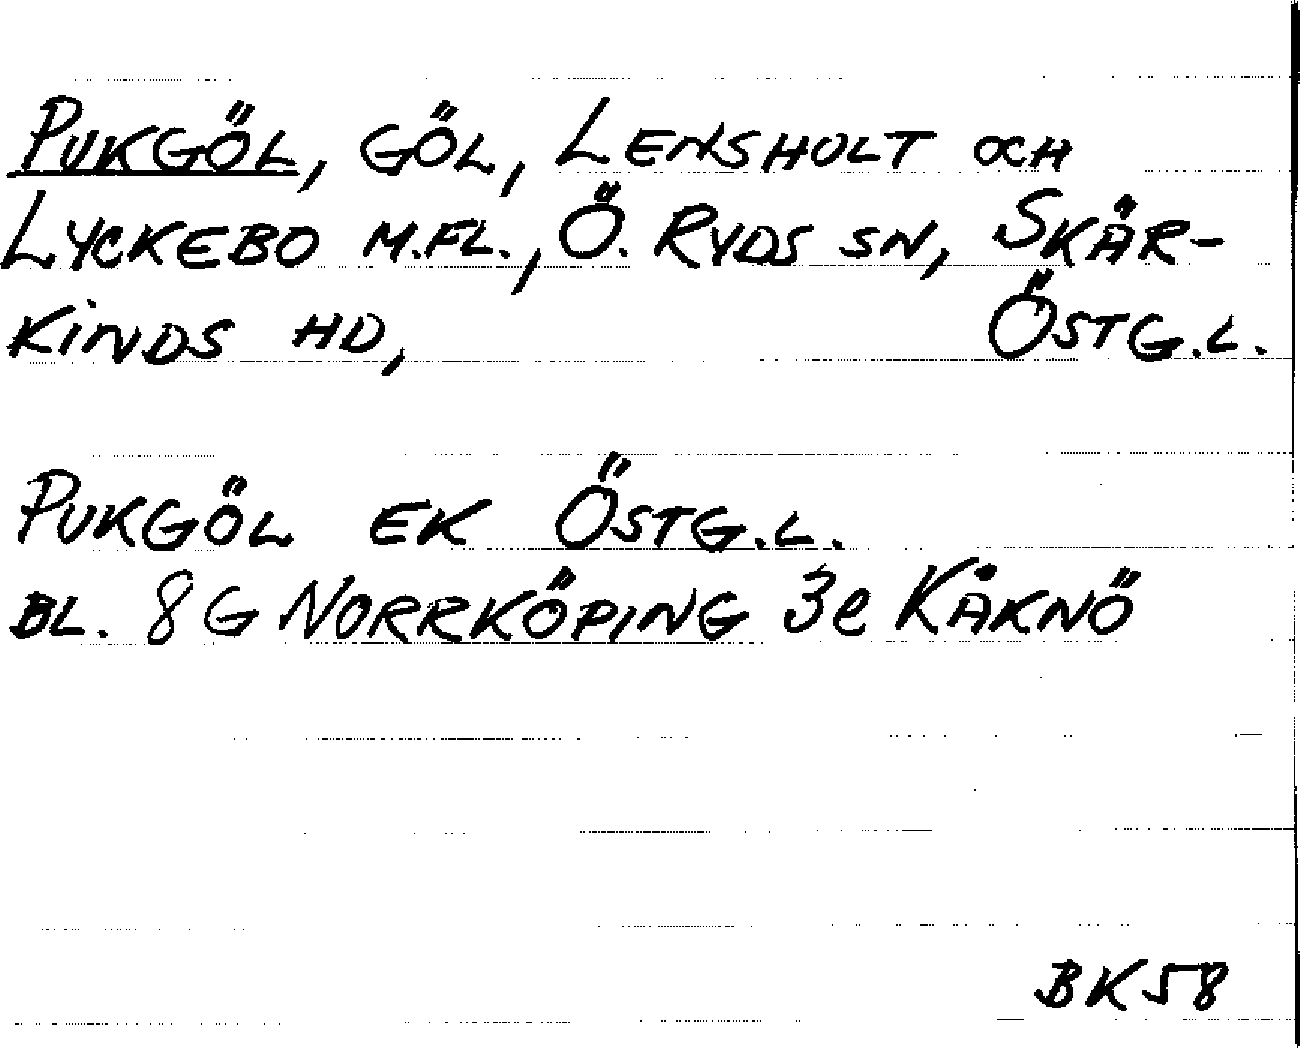 PUKGÖL, GÖL, LENSHOLT OCH
LYCKEBO M.FL., Ö. RYDS SN, SKÄR-
KINDS HD, ÖSTG.L.
PUKGÖL EK ÖSTG.L.
BL. 8G NORRKÖPING 3e KÅKNÖ
BK58